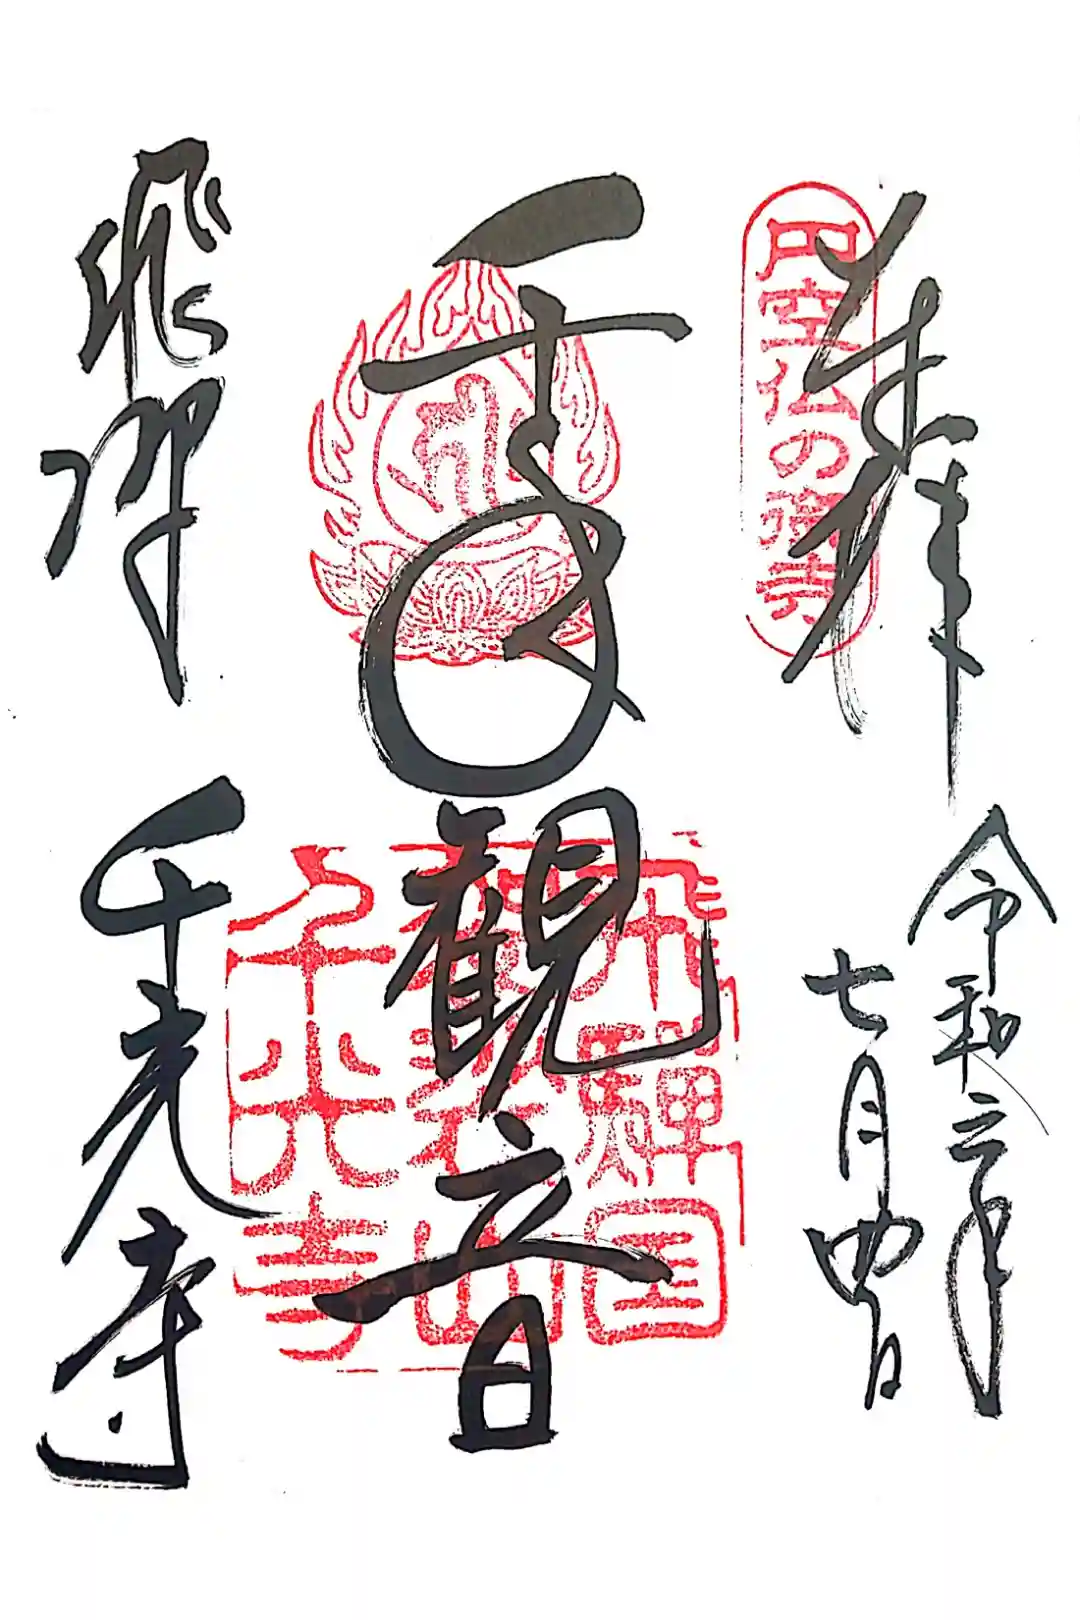 奉拝
円空仏の御寺
令和元年
七月四日
千手観音
飛騨国
袈裟山
千光寺
飛騨
千光寺